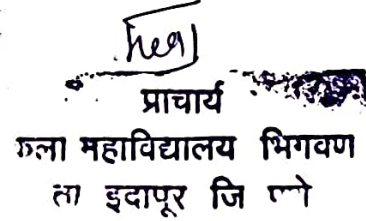 प्राचार्य
कला महाविद्यालय भिगवण
ता इदापूर जि